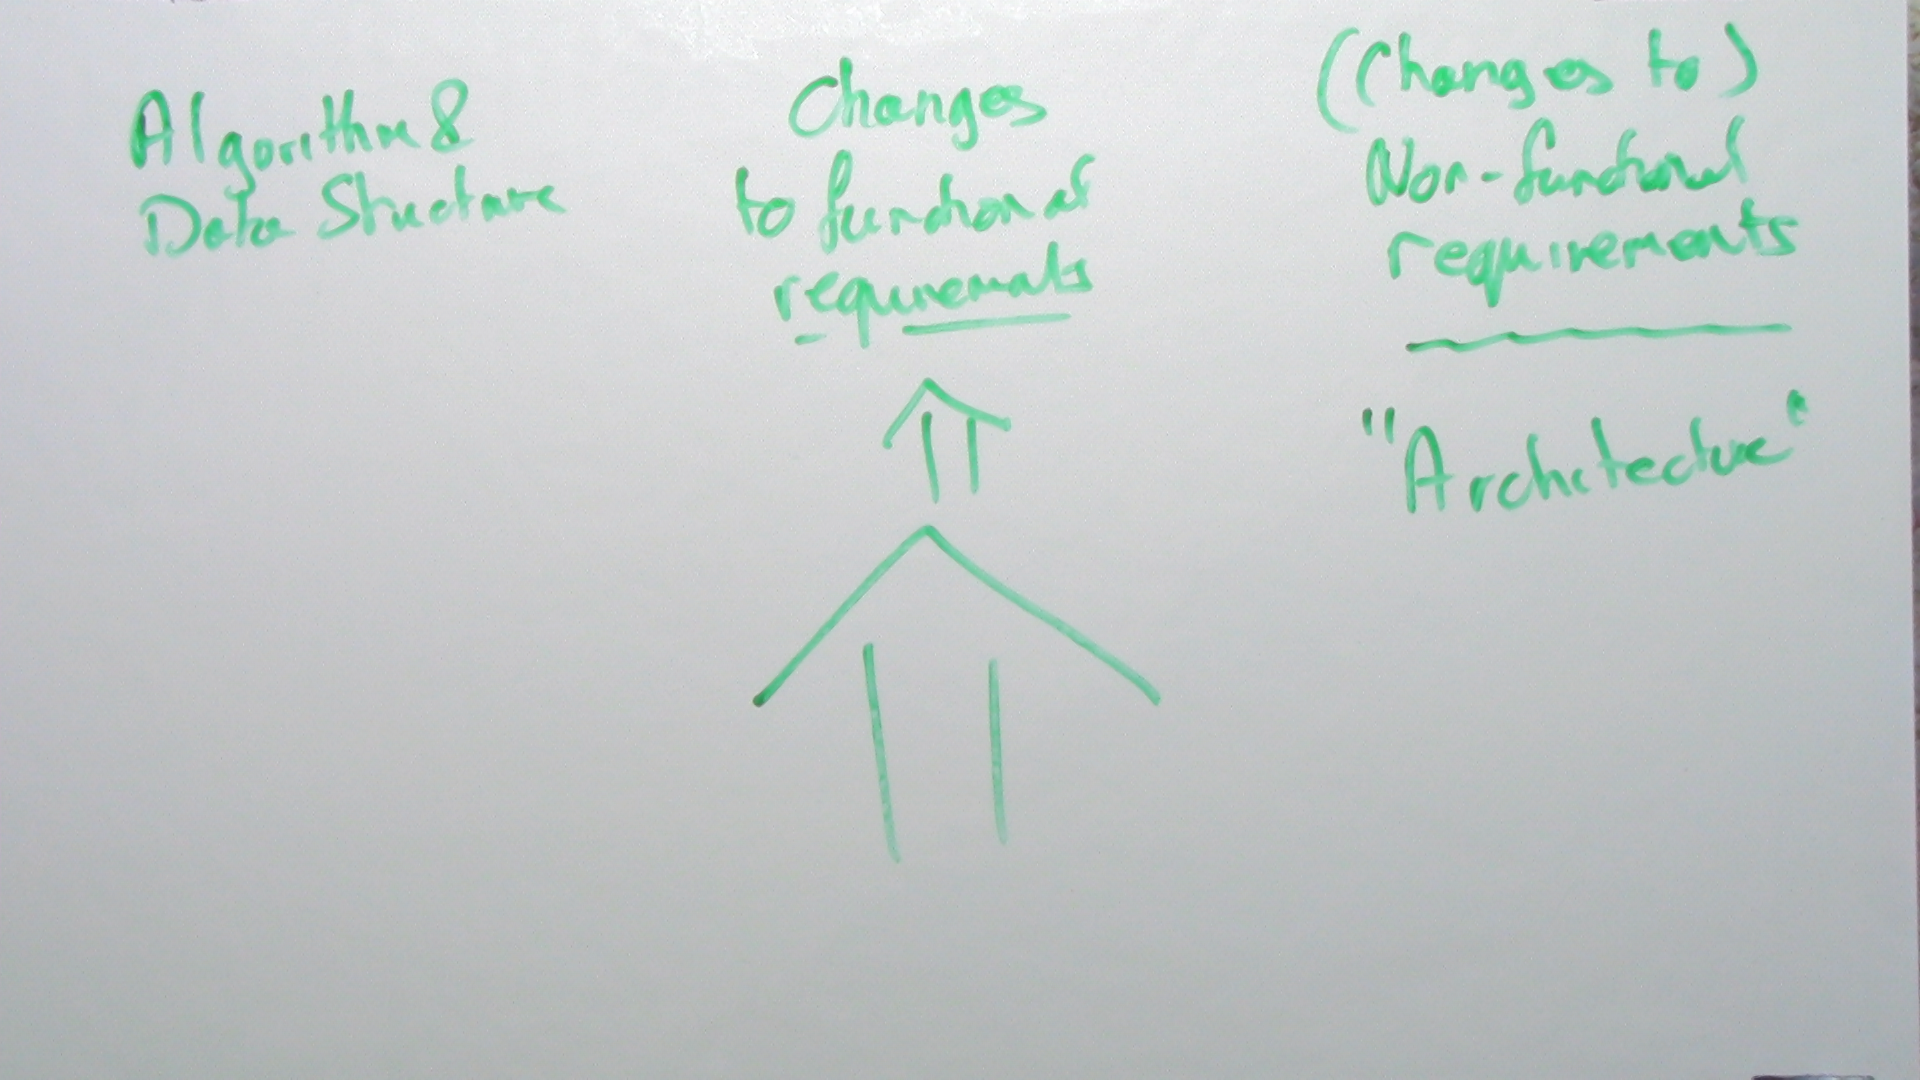 Algorithm &
Data Structure
Changes
to functional
requirements
(Changes to)
Non-functional
requirements
"Architecture"